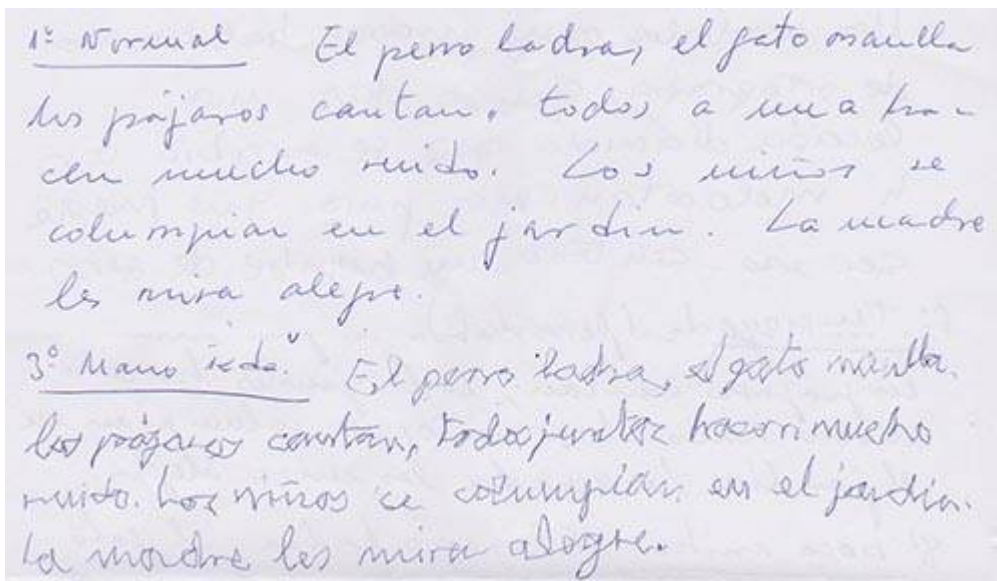 1º Normal El perro ladra, el gato maulla
los pájaros cantan, todos a una ha-
cen mucho ruido. Los niños se
columpian en el jardin. La madre
les mira alegre.
3º Mano izda. El perro ladra, el gato maulla.
los pájaros cantan, todos juntos hacen mucho
ruido. Los niños se columpian en el jardin.
la madre les mira alegre.